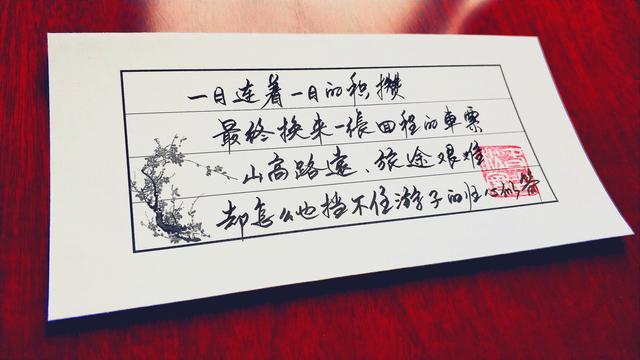 一日连着一日的积攒
最终换来一張回程的車票
山高路遠、旅途艰难
却怎么也挡不住游子的归心似箭